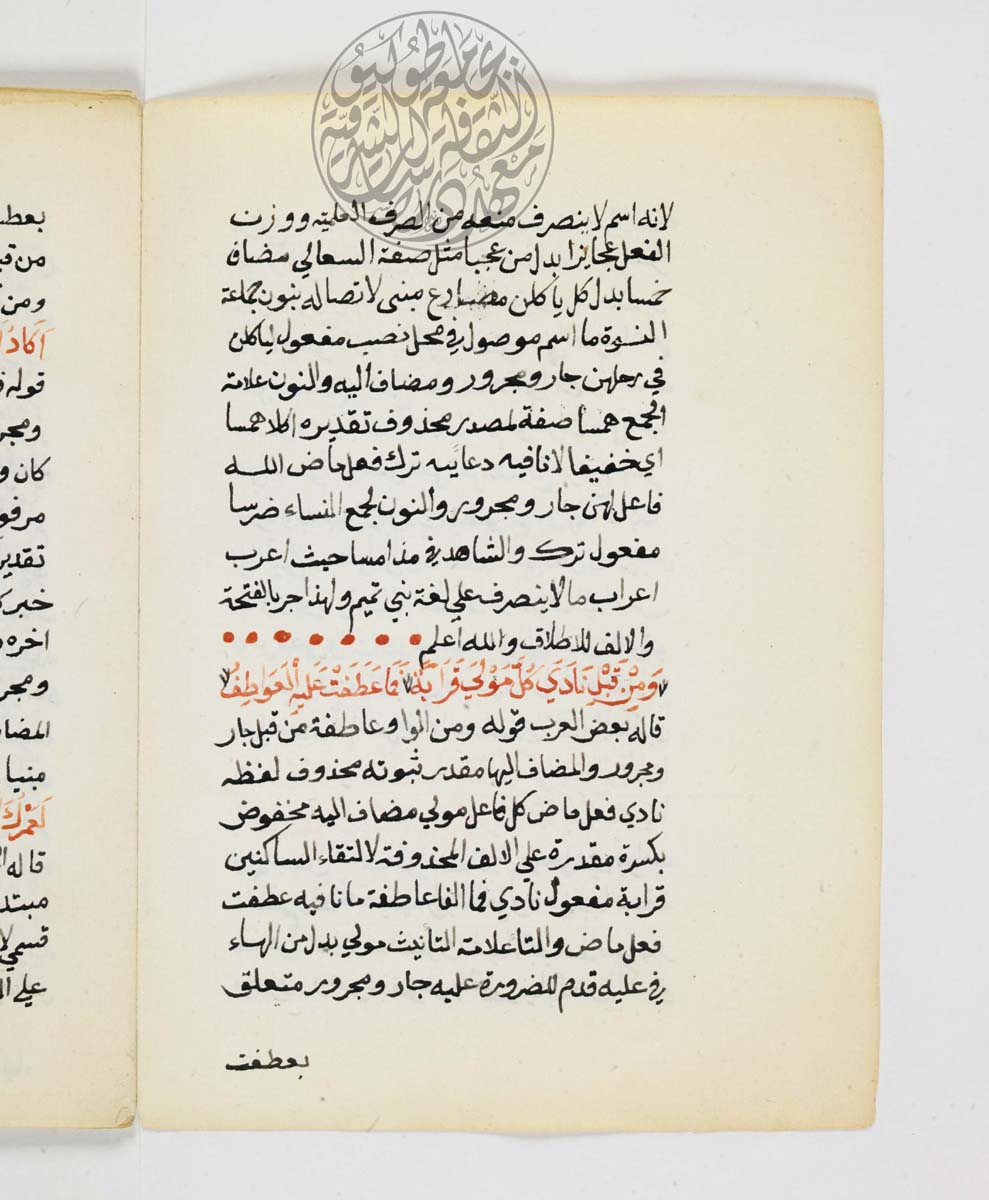 جامعة طوكيو
معهد دراسات الثقافة الشرقية
لانه اسم لا ينصرف منعه من الصرف العلمية ووزن
الفعل عجايزا بدل من عجبا مثل صفة السعالي مضاف
خمسا بدل كل ياكلن مضارع مبني لاتصاله بنون جماعة
النسوة ما اسم موصول في محل نصب مفعول لياكلن
في رحلهن جار ومجرور ومضاف اليه والنون علامة
الجمع همسا صفة لمصدر محذوف تقديره اكلا همسا
اي خفيفا لا نافيه دعاييه ترك فعل ماض الله
فاعل لهن جار ومجرور والنون لجمع النساء ضرسا
مفعول ترك والشاهد في مذ امسا حيث اعرب
اعراب ما لا ينصرف علي لغة بني تميم ولهذا جر بالفتحة
والالف للاطلاق والله اعلم
وَمِنْ قَبْلِ نَادَي كُلُّ مَوْلَي قَرَابَةً فَمَا عَطَفَتْ عَلَيْهِ الْعَوَاطِفُ
قاله بعض العرب قوله ومن الواو عاطفة من قبل جار
ومجرور والمضاف اليها مقدر ثبوته محذوف لفظه
نادي فعل ماض كل فاعل مولي مضاف اليه مخفوض
بكسرة مقدرة علي الالف المحذوفة لالتقاء الساكنين
قرابة مفعول نادي فما الفا عاطفة ما نافيه عطفت
فعل ماض والتا علامة التانيث مولي بدل من الهاء
في عليه قدم للضرورة عليه جار ومجرور متعلق
بعطفت
بعطف
من قب
ومن
اَكَادُ
قوله
ومجر
كان و
مرفو
تقدير
خبر ك
اخره
ومجر
المضا
مبنيا
لَعَمْرُكَ
قاله
مبتد
قسمي لا
علي ال